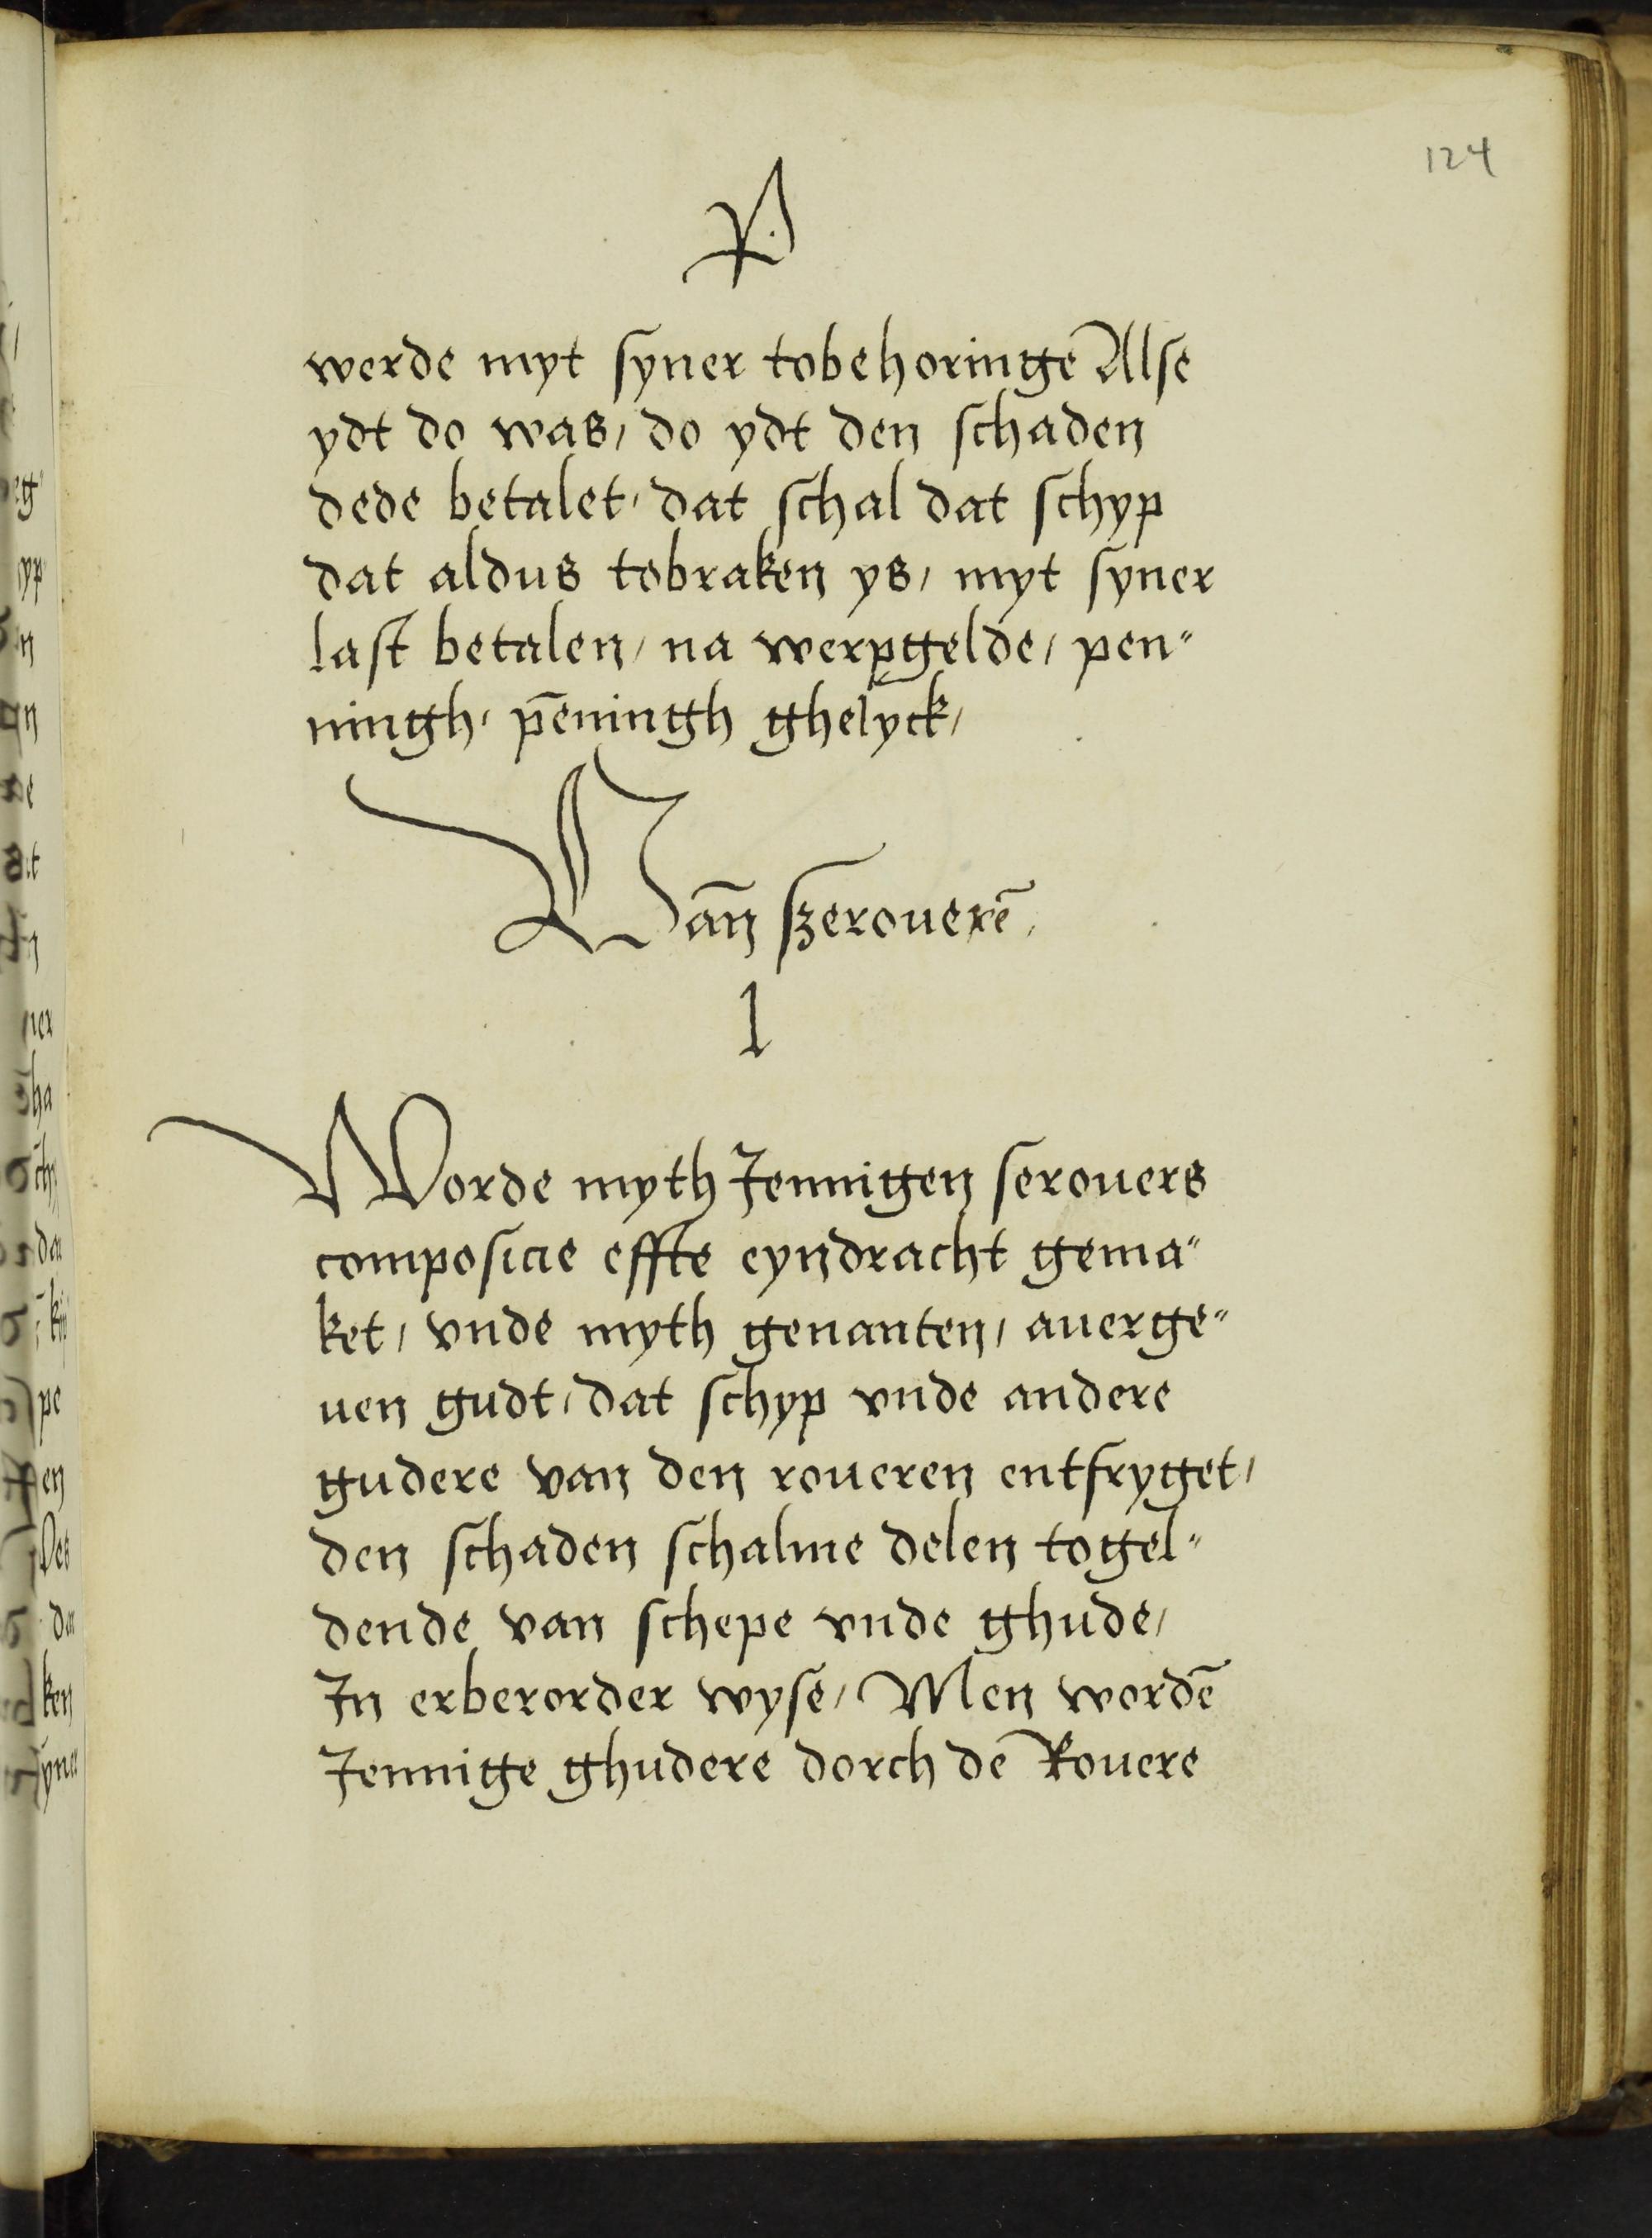 124
P.
werde myt syner tobehoringe Alse
ydt do was, do ydt den schaden
dede betalet, dat schal dat schyp
dat aldus tobraken ys, myt syner
last betalen, na werpgelde, pen"
ningh, pēningh ghelyck,
Van szerouerē,
1
Worde myth Jennigen serouers
composicie effte eyndracht gema"
ket, vnde myth genanten, auerge"
uen gudt, dat schyp vnde andere
gudere van den roueren entfryget,
den schaden schalme delen togel"
dende van schepe vnde ghude,
In erberorder wyse, Men wordē
Jennige ghudere dorch dē Rouere